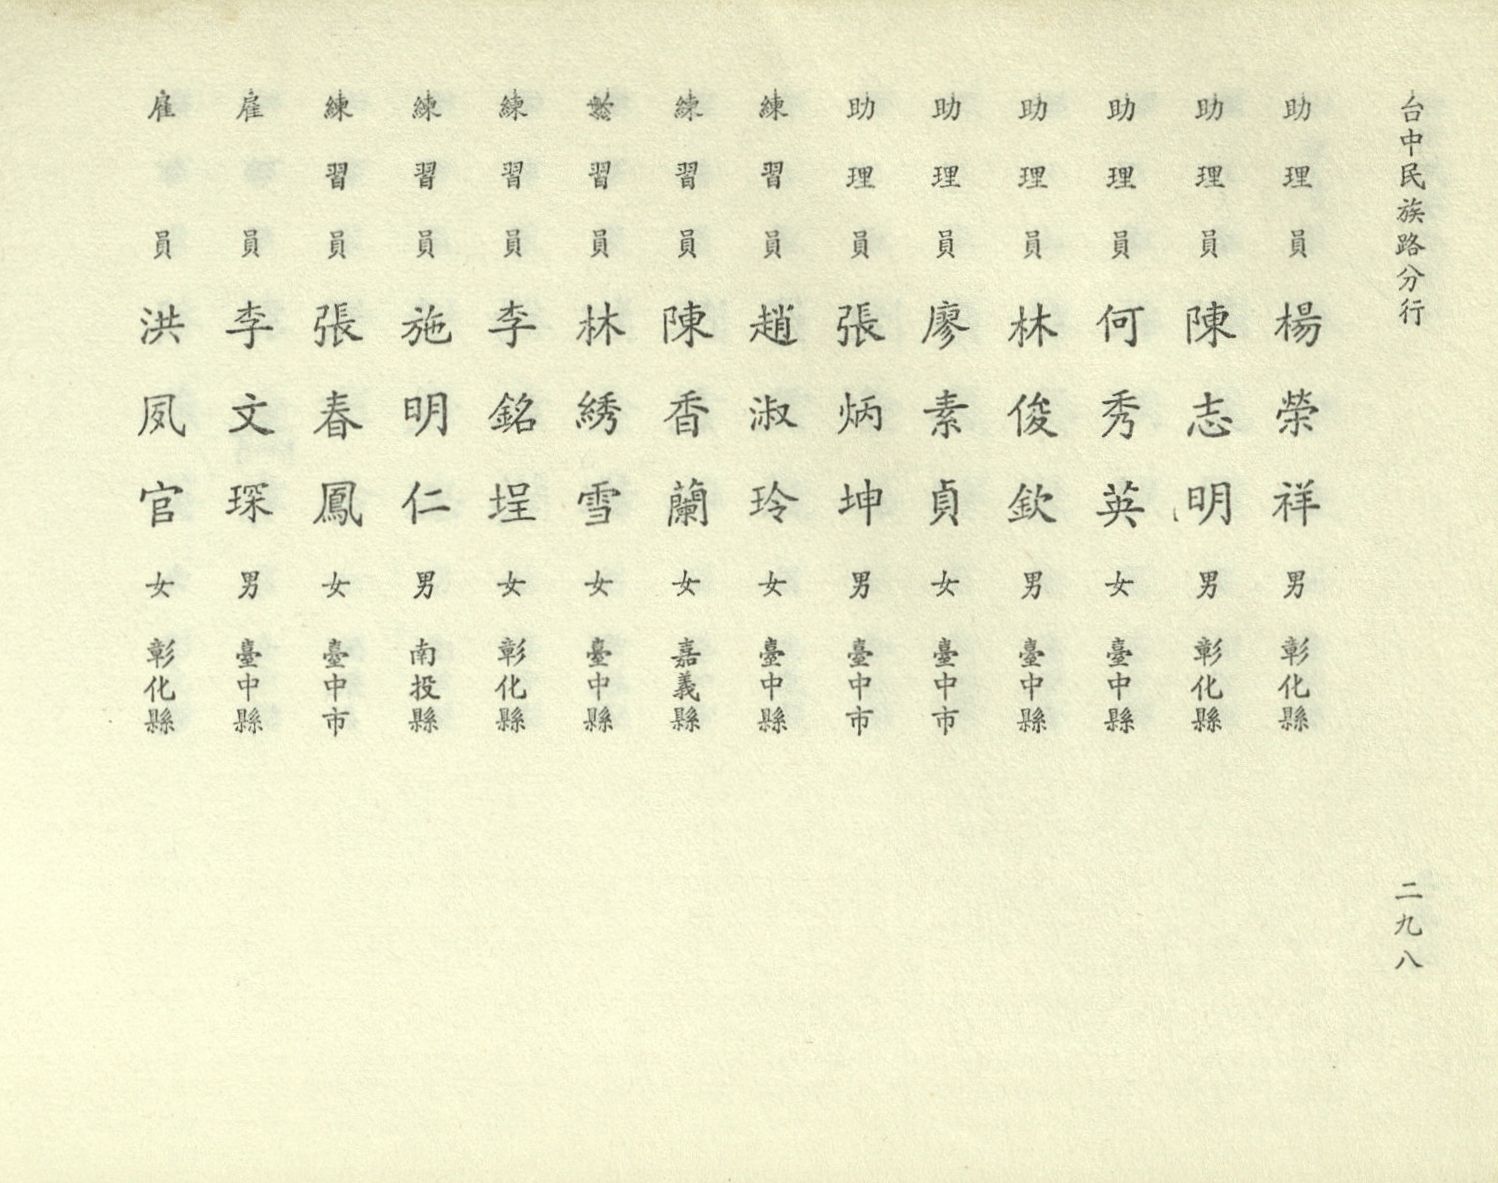 台中民族路分行
二九八
助理員 楊榮祥 男 彰化縣
助理員 陳志明 男 彰化縣
助理員 何秀英 女 臺中縣
助理員 林俊欽 男 臺中縣
助理員 廖素貞 女 臺中市
助理員 張炳坤 男 臺中市
練習員 趙淑玲 女 臺中縣
練習員 陳香蘭 女 嘉義縣
習員 林綉雪 女 臺中縣
練習員 李銘埕 女 彰化縣
練習員 施明仁 男 南投縣
練習員 張春鳳 女 臺中市
雇員 李文琛 男 臺中縣
雇員 洪夙官 女 彰化縣